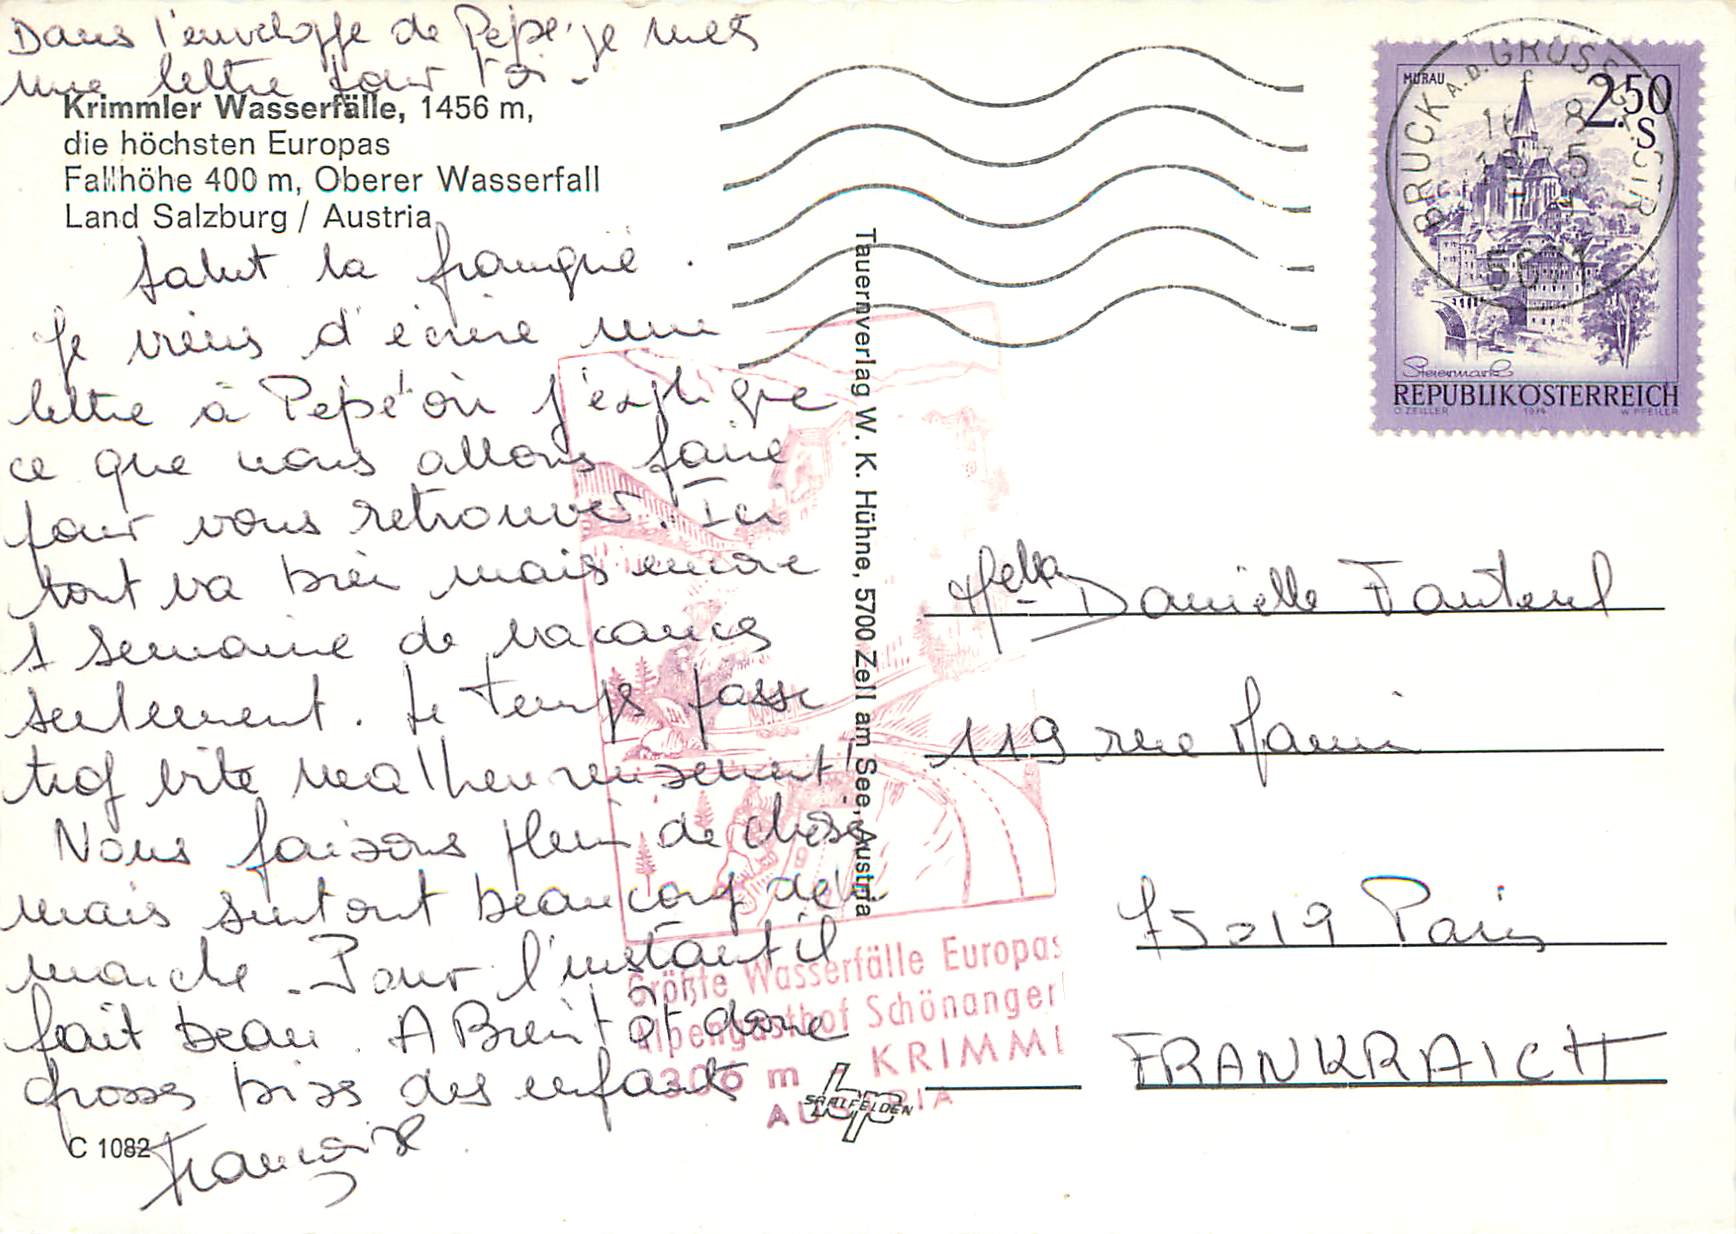 Dans l'enveloppe de Pépé je mets
une lettre pour toi -
Krimmler Wasserfälle, 1456 m,
die höchsten Europas
Fallhöhe 400 m, Oberer Wasserfall
Land Salzburg / Austria
Salut la
Je viens d'écrire une
lettre à Pépé où j'explique
ce que nous allons faire
pour vous retrouver. Ici
tout va bien mais encore
1 semaine de vacances
seulement. Le temps passe
trop vite malheureusement!
Nous faisons plein de choses
mais surtout beaucoup de
marche. Pour l'instant il
fait beau. A Bientôt donc
grosses bises des enfants
Françoise
C 1082
Tauernverlag W. K. Hühne, 5700 Zell am See, Austria
Größte Wasserfälle Europas
Alpengasthof Schönangerl
1306 m KRIMML
AUSTRIA
SAALFELDEN
MURAU
2.50
S
Steiermark
REPUBLIK ÖSTERREICH
O. ZEILLER 1974 W. PFEILER
BRUCK A.D. GROSSGL.STR.
Danielle Fauteul
119 rue Manin
75019 Paris
FRANKRAICH